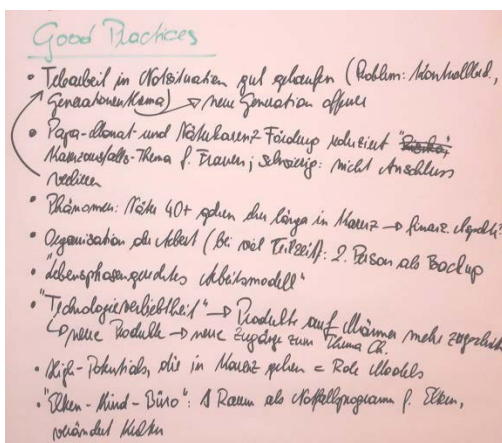 Good Practices
• Telearbeit in Notsituation gut gelaufen (Problem: Kontrollbed.,
Generationenthema) → neue Generation offener
• Papa-Monat und Väterkarenz Förderung reduziert "Risiko",
Karenzausfalls-Thema f. Frauen; schwierig: nicht Anschluss
verlieren
• Phänomen: Väter 40+ gehen eher länger in Karenz → finanz. Aspekt?
• Organisation der Arbeit (bei viel Teilzeit: 2. Person als Backup
• "Lebensphasengerechtes Arbeitsmodell"
• "Technologieverliebtheit" → Produkte auf Männer mehr
↳ neue Produkte → neue Zugänge zum Thema Ch.
• High-Potentials, die in Karenz gehen = Role Models
• "Eltern-Kind-Büro": 1 Raum als Notfallprogramm f. Eltern,
verändert Kultur